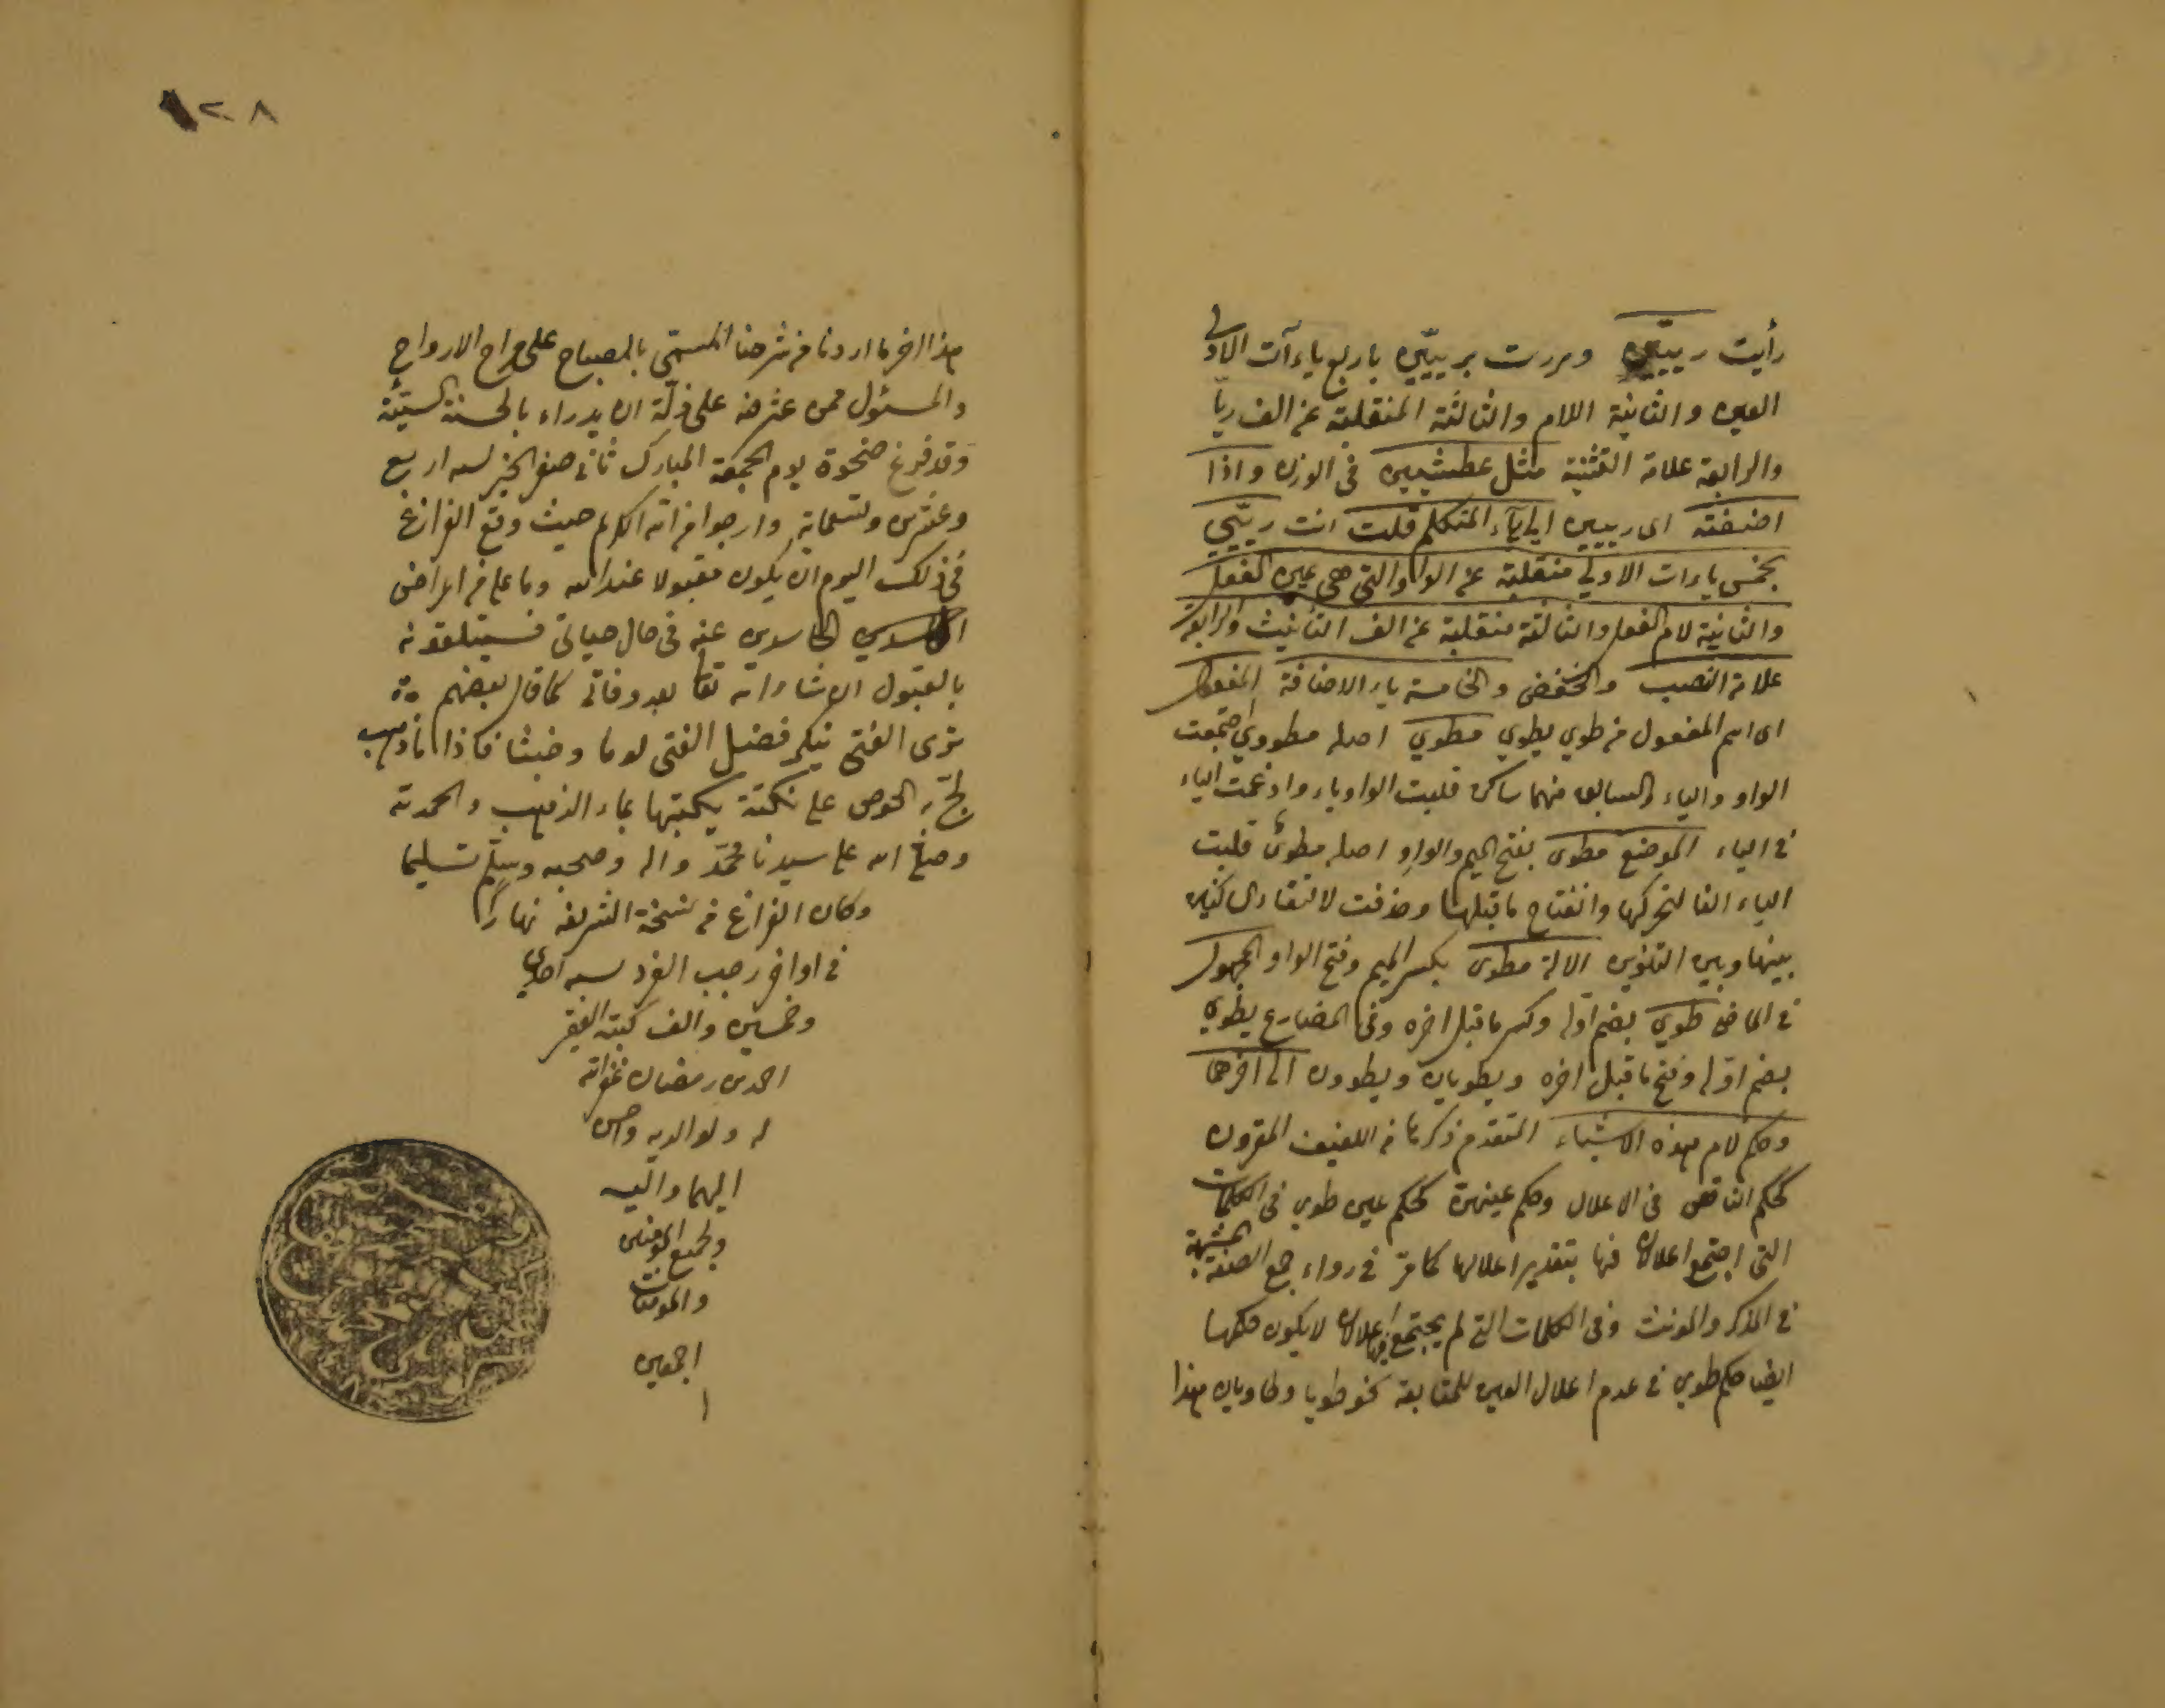 رأيت رييين ومررت برييين باربع ياءآت الاولى
العين والثانية اللام والثالثة المنقلبة عن الف ريّا
والرابعة علامة التثنية مثل عطشيين فى الوزن واذا
اضفته اى رييين الى ياء المتكلم قلت انت رييي
بخمس ياءات الاولى منقلبة عن الواو التى هى عين الفعل
والثانية لام الفعل والثالثة منقلبة عن الف التأنيث والرابعة
علامة النصب والخفض والخامسة ياء الاضافة المفعول
اى اسم المفعول من طوي يطوي مطوي اصله مطووي اجتمعت
الواو والياء والسابق منهما ساكن قلبت الواو ياء وادغمت الياء
فى الياء الموضع مطوى بفتح الميم والواو اصله مطوى قلبت
الياء الفا لتحركها وانفتاح ما قبلها وحذفت لالتقاء الساكنين
بينها وبين التنوين الالة مطوى بكسر الميم وفتح الواو المجهول
فى الماضى طوي بضم اوله وكسر ما قبل اخره وفى المضارع يطوي
بضم اوله وفتح ما قبل اخره ويطويان ويطوون الى اخرهما
وحكم لام هذه الاشياء المتقدم ذكرها من اللفيف المقرون
كحكم الناقص فى الاعلال وحكم عينهن كحكم عين طوي فى الكلمات
التى اجتمع اعلالان فيها بتقدير اعلالها كما مرّ فى رواء جمع الصفة المشبهة
فى المذكر والمونث وفى الكلمات التى لم يجتمع فيها اعلالان لا يكون حكمها
ايضا حكم طوي فى عدم اعلال العين للمتابعة نحو طويا وطاويان هذا
١٢٨
هذا اخر ما اردنا من شرحنا المسمّى بالمصباح على مراح الارواح
والمسئول ممن عثر منه على زلّة ان يدراء بالحسنة السيّئة
وقد فرغ ضحوة يوم الجمعة المبارك ثانى صفر الخير لسنه اربع
وعشرين وتسعماية وارجوا من الله الكريم حيث وقع الفراغ
فى ذلك اليوم ان يكون مقبولا عند الله وما على من اعراض
الحاسدين عنه فى حال حياتى فسيتلقونه
بالقبول ان شاء الله تعا بعد وفاتى كما قال بعضهم
ترى الفتى ينكر فضل الفتى لوما وخبثا فاذا ما ذهب
لجّ به الحرص على نكتة يكتبها بماء الذهب والحمد لله
وصلى الله على سيدنا محمّد واله وصحبه وسلّم تسليما
وكان الفراغ من نسخة الشريفه نهارًا
فى اواخر رجب الفرد لسنه احدى
وخمسين والف كتبه الفقير
احمد بن رمضان غفر الله
له ولوالديه واحسن
اليهما واليه
ولجميع المومنين
والمومنات
اجمعين